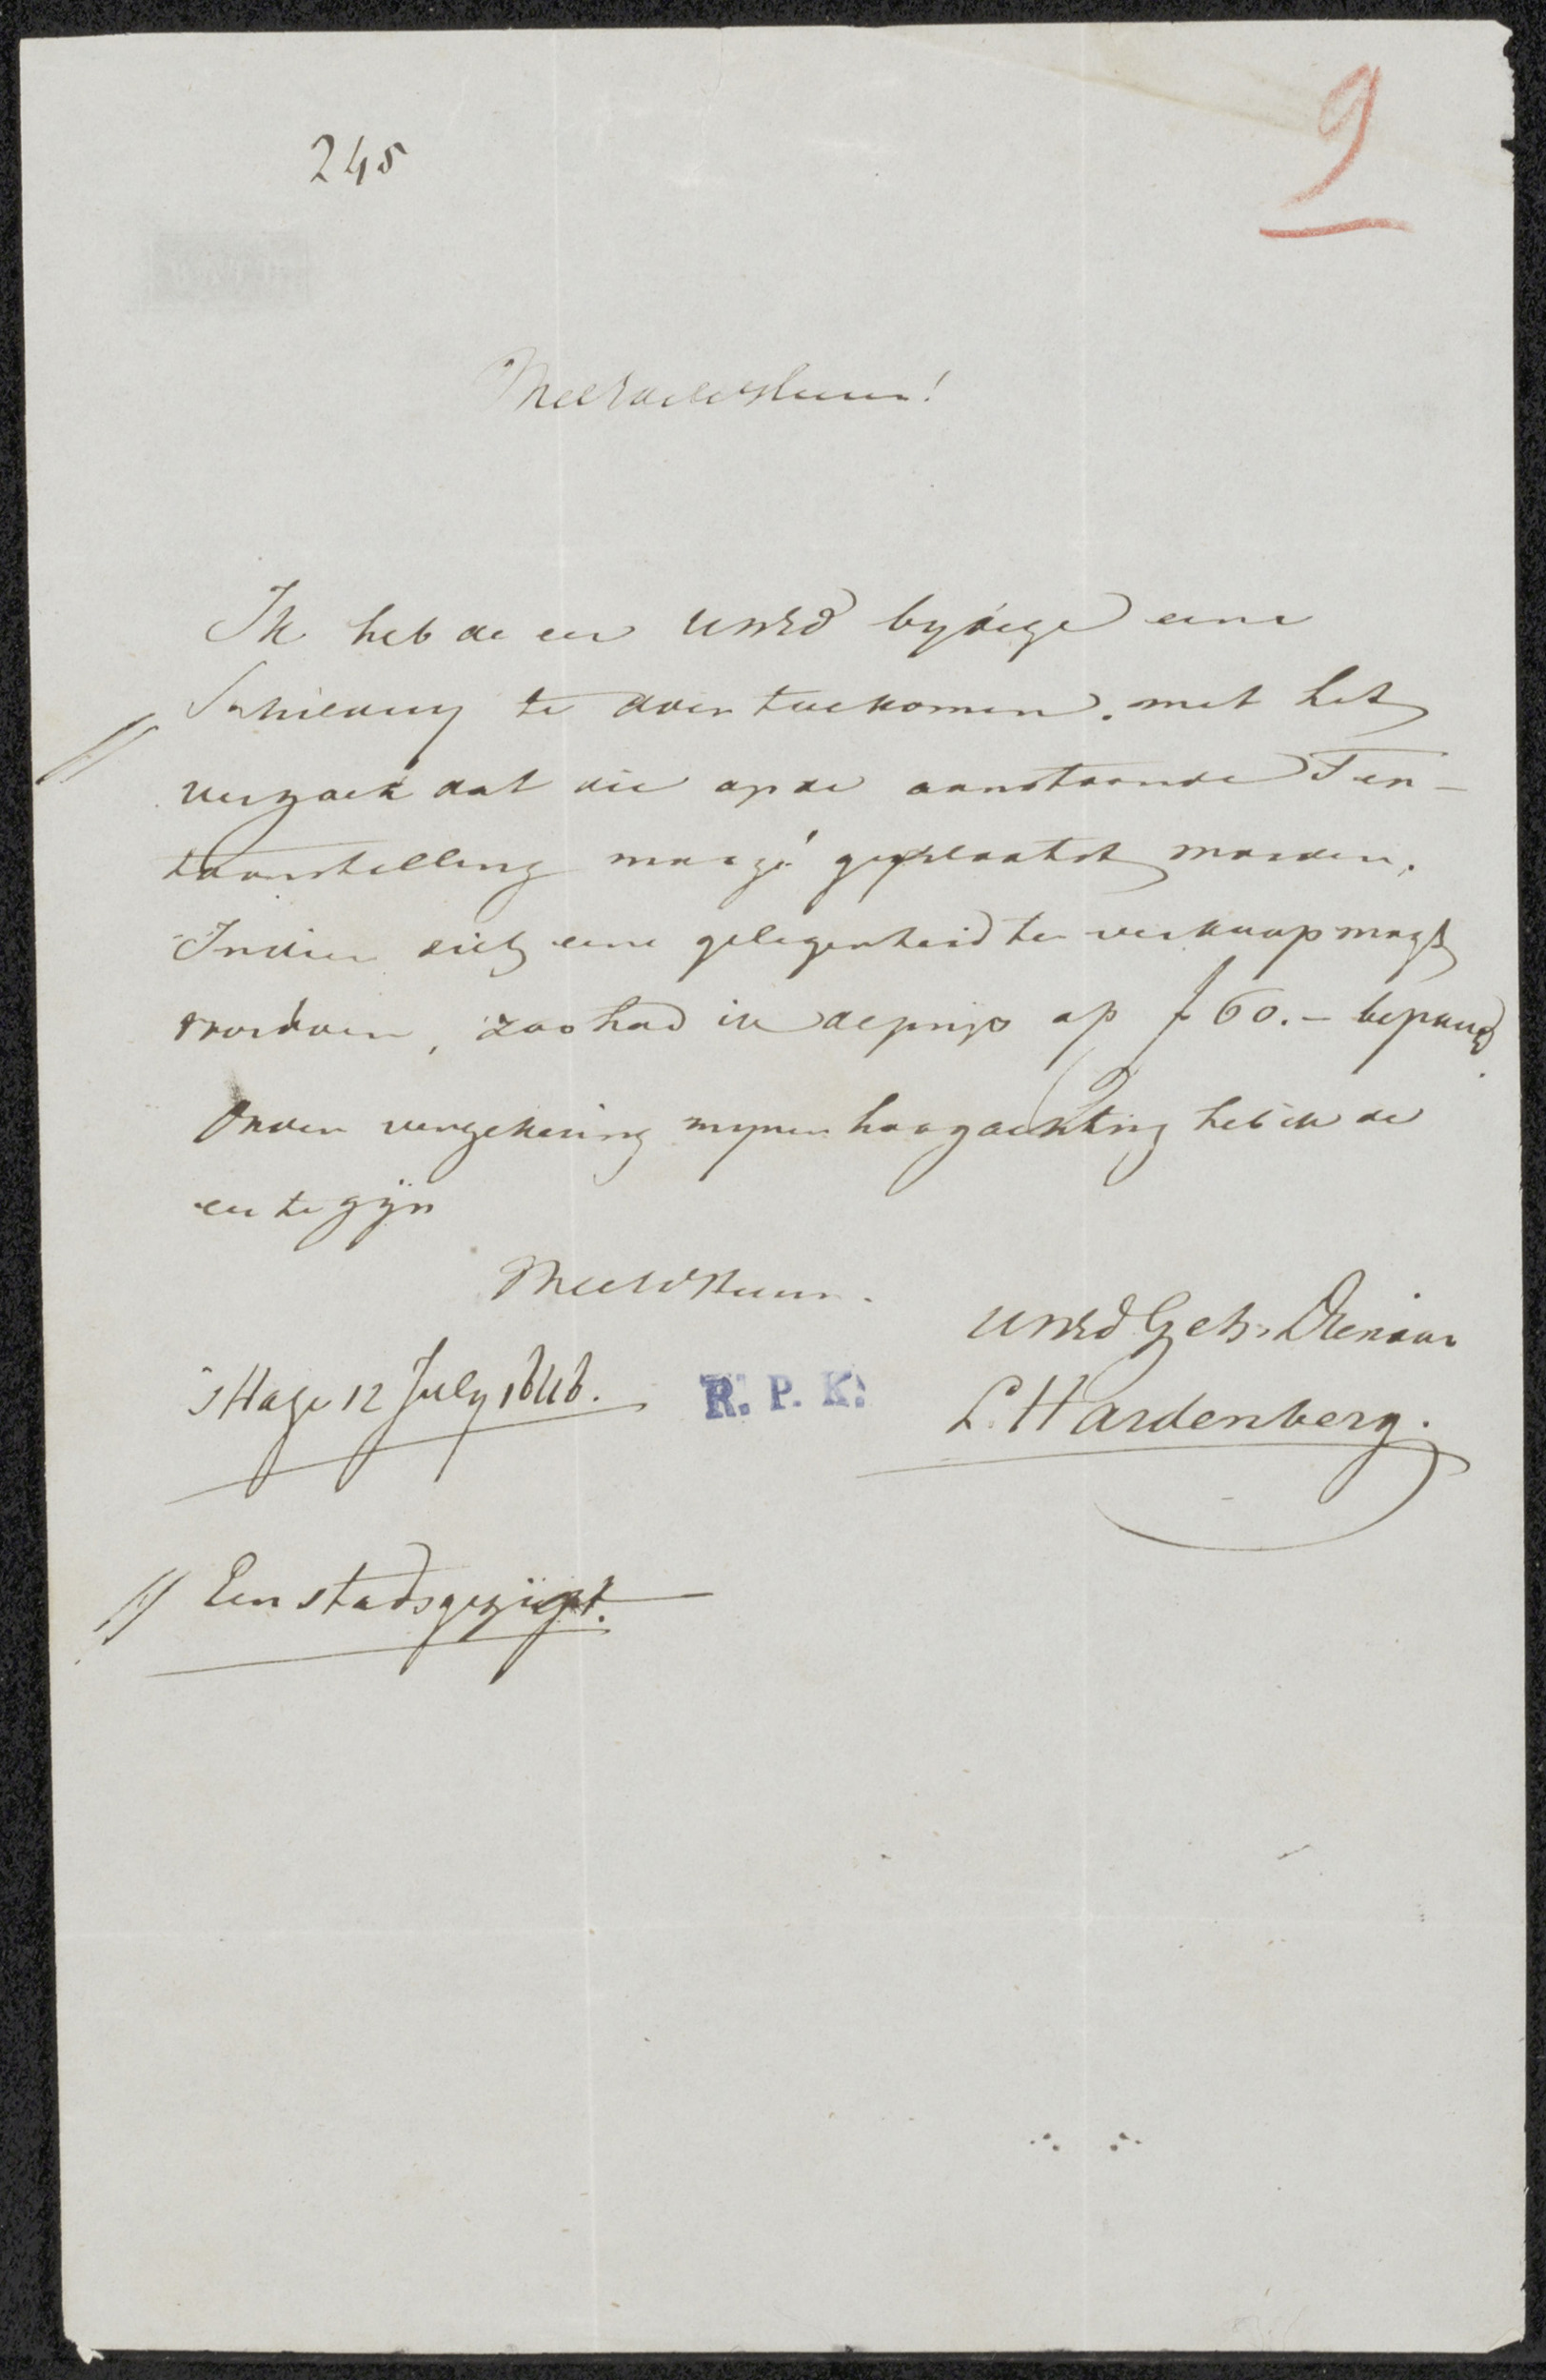 9
245
WelEdele Heer!
Ik heb de eer UWEd bijdeze eene
Schildery te doen toekomen. met het
verzoek dat die op de aanstaande Ten-
toonstelling moge geplaatst worden.
Indien zich eene gelegenheid ten verkoop mogt
voordoen, zoo had ik de prijs op ƒ 60.- bepaald.
Onder verzekering mijner hoogachting heb ik de
eer te zijn
WelEd Heer.
UWEd Geh. Dienaar
s'Hage 12 July 1846.
R. P. K.
L. Hardenberg.
// Een stadsgezigt.